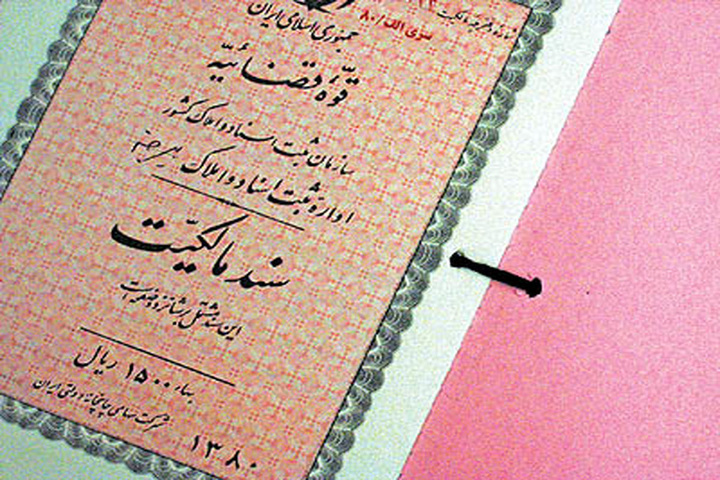 جمهوری اسلامی ایران
قوّهٔ قضائیّه
سازمان ثبت اسناد و املاک کشور
اداره ثبت اسناد و املاک
سند مالکیّت
این سند مشتمل بر شانزده صفحه است
بهاء ۱۵۰۰ ریال
شرکت سهامی چاپخانه دولتی ایران
۱۳۸۰